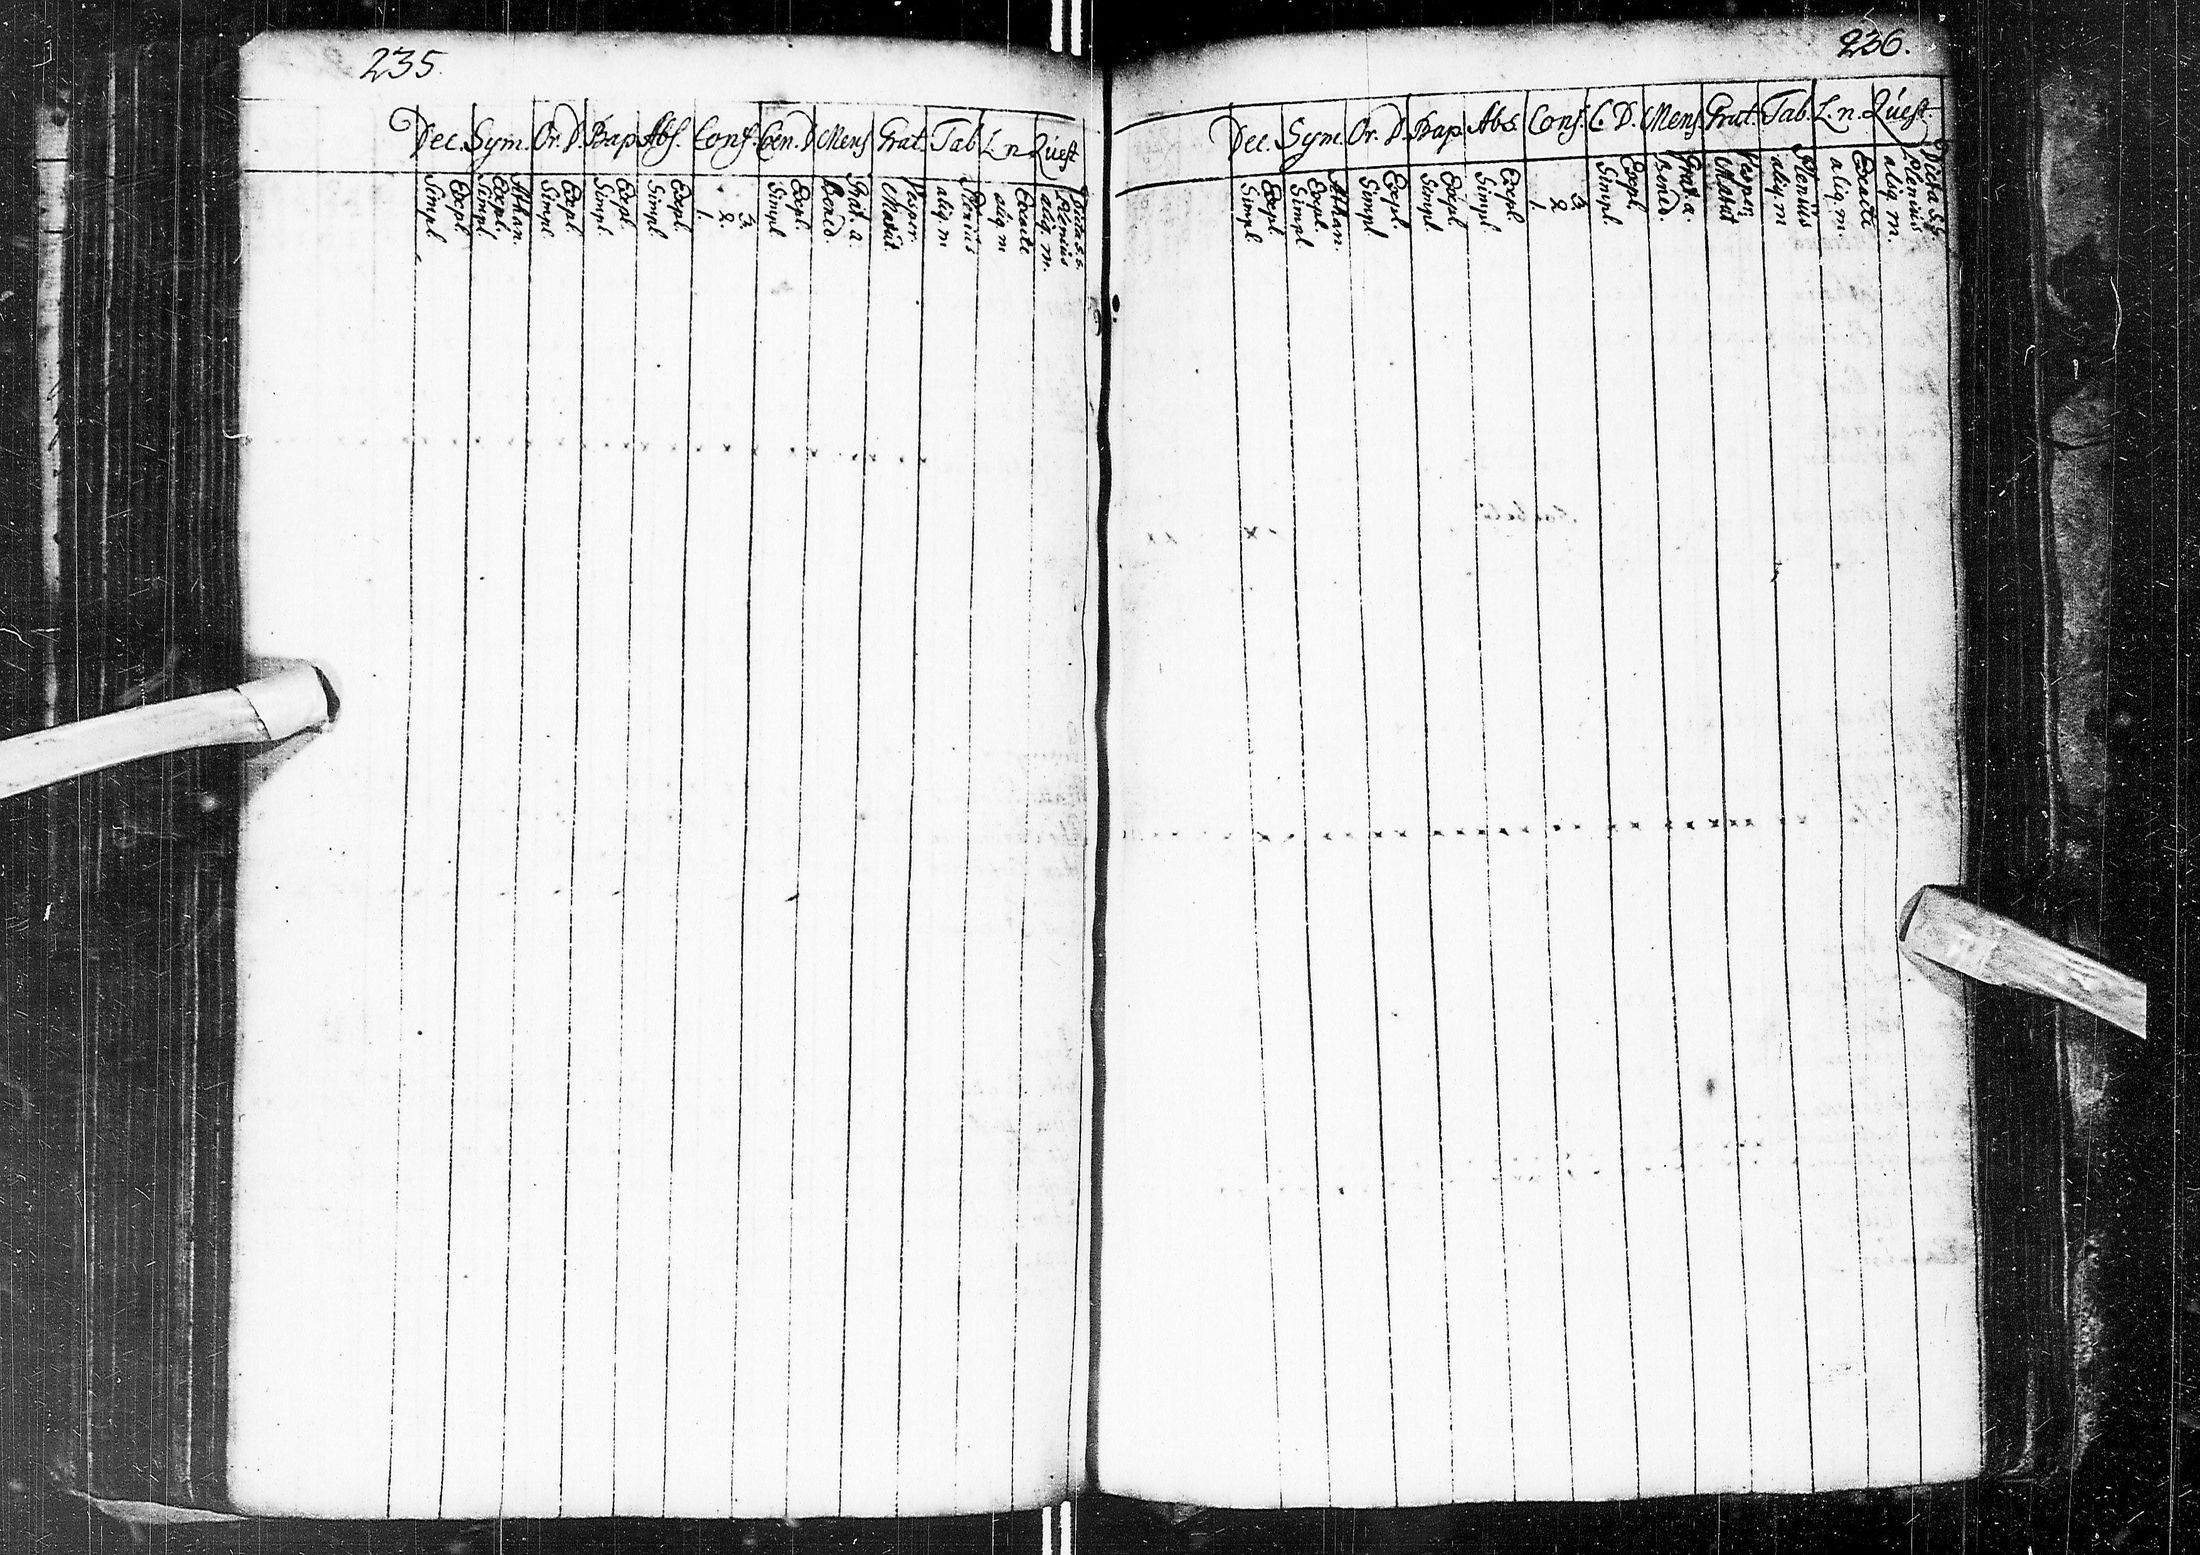 235.
Dec. Sym. Or. D. Bap. Abs. Conf. Cen. D. Mens. Grat. Tab. L. n. Quest
Simpl. Expl. Simpl. Expl. Athan. Simpl. Expl. Simpl. Expl. Simpl. Expl. 1. 2. 3. Simpl. Expl. Bened. Grat. a. Matut. Vesper. aliq. m Plenius aliq. m Exacte aliq. m. Plenius Dicta S. S.
236.
Dec. Sym. Or. D. Bap. Abs Conf. C. D. Mens. Grat. Tab. L. n. Quest.
Simpl. Expl. Simpl. Expl. Athan. Simpl. Expl. Simpl. Expl. Simpl. Expl 1. 2. 3. Simpl. Expl. Bened. Grat. a. Matut Vesper. aliq. m Plenius aliq. m. Exacte aliq. m. Plenius Dicta S. S.